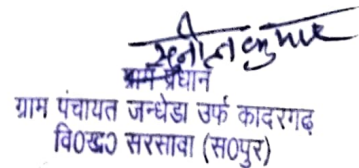 सुनील कुमार
ग्राम प्रधान
ग्राम पंचायत जन्धेडा उर्फ कादरगढ़
वि०ख० सरसावा (स०पुर)